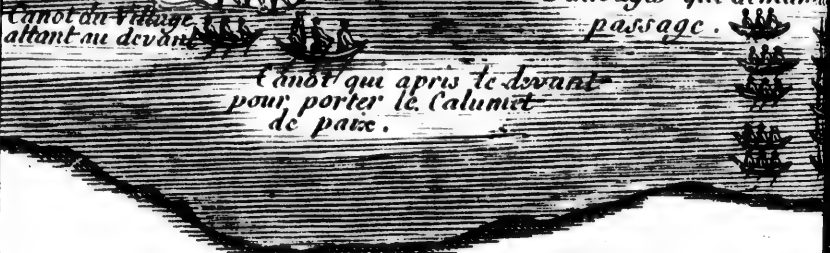 Canot du Village
allant au devant
passage.
Canot qui a pris le devant
pour porter le Calumet
de paix.